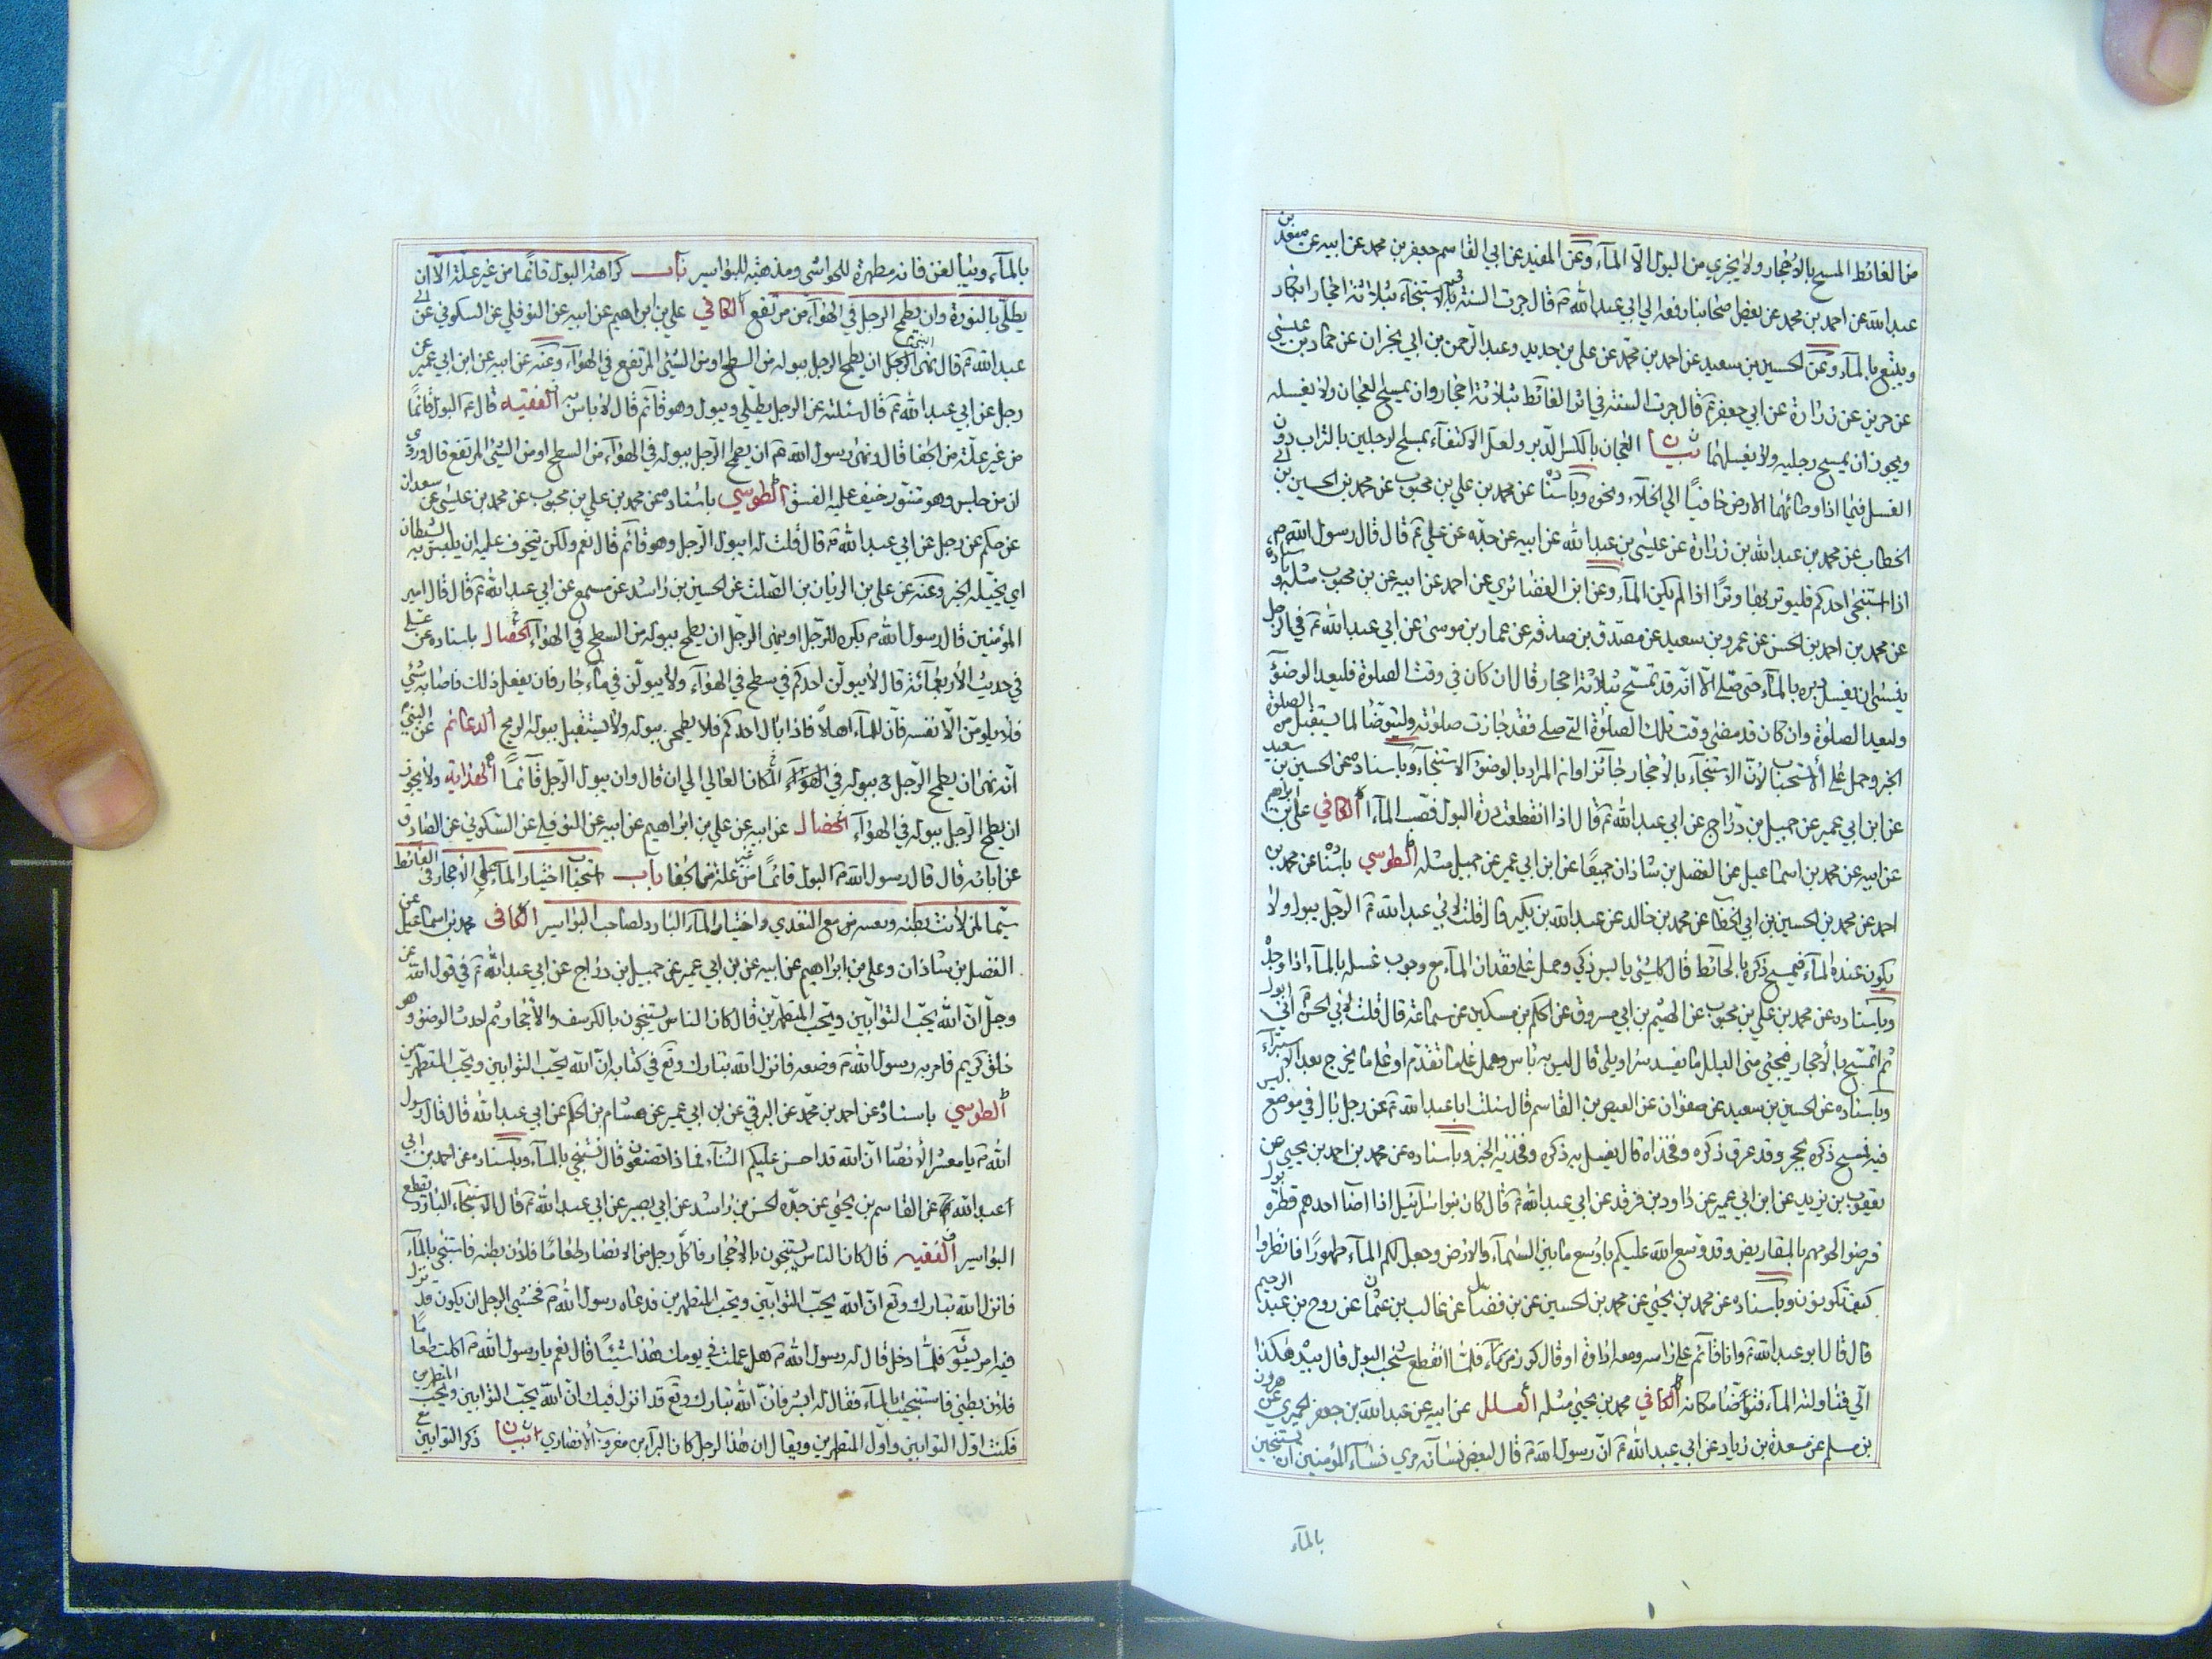 من الغائط المسح بالأحجار ولا يجزي من البول الا المآء وعن المفيد عن ابي القاسم جعفر بن محمد عن ابيه عن سعد بن
عبد الله عن احمد بن محمد عن بعض اصحابنا رفعه الي ابي عبد الله ع قال جرت السنة في الاستنجآء بثلاثة احجار ابكار
ويتبع بالمآء وعن الحسين بن سعيد عن احمد بن محمد عن علي بن حديد وعبد الرحمن بن ابي نجران عن حماد بن عيسى
عن حريز عن زرارة عن ابي جعفر ع قال جرت السنة في اثر الغائط بثلاثة احجار وان يمسح العجان ولا يغسله
ويجوز ان يمسح رجليه ولا يغسلهما العجان بالكسر الدبر ولعل الاكتفآء بمسح الرجلين بالتراب دون
الغسل فيما اذا وطائهما الارض حافيًا الي الخلآء ونحوه وباسناده عن محمد بن علي بن محبوب عن محمد بن الحسين بن ابي
الخطاب عن محمد بن عبد الله بن زرارة عن عيسى بن عبد الله عن ابيه عن جده عن علي ع قال قال رسول الله ص
اذا استنجى احدكم فليوتر بها وترًا اذا لم يكن المآء وعن ابن الغضائري عن احمد عن ابيه عن بن محبوب مثله وباسناده
عن محمد بن احمد بن الحسن عن عمرو بن سعيد عن مصدق بن صدقه عن عمار بن موسى عن ابي عبد الله ع في الرجل
ينسى ان يغسل دبره بالمآء حتى صلى الا انه قد تمسح بثلاثة احجار قال ان كان في وقت الصلوة فليعد الوضوء
وليعد الصلوة وان كان قد مضى وقت تلك الصلوة التي صلى فقد جازت صلوته وليتوضا لما يستقبل من الصلوة
الخبر وحمل على الاستحباب لأن الاستنجآء بالأحجار جائز او انه المراد بالوضوء الاستنجآء وباسناده عن الحسين بن سعيد
عن ابن ابي عمير عن جميل بن دراج عن ابي عبد الله ع قال اذا انقطعت درة البول فصب المآء الكافي علي بن ابراهيم
عن ابيه عن محمد بن اسماعيل عن الفضل بن شاذان جميعًا عن ابن ابي عمير عن جميل مثله الطوسي باسناده عن محمد بن
احمد عن محمد بن الحسين بن ابي الخطاب عن محمد بن خالد عن عبد الله بن بكير قال قلت لابي عبد الله ع الرجل يبول ولا
يكون عنده المآء فيمسح ذكره بالحائط قال كل شئ يابس ذكي وحمل على فقدان المآء مع وجوب غسله بالمآء اذا وجد
وباسناده عن محمد بن علي بن محبوب عن الهيثم بن ابي مسروق عن الحكم بن مسكين عن سماعة قال قلت لابي الحسن ع اني ابول
ثم اتمسح بالأحجار فيجئ مني البلل ما يفسد سراويلي قال ليس به باس وحمل على ما تقدم او على ما يخرج بعد الاستبرآء
وباسناده عن الحسين بن سعيد عن صفوان عن العيص بن القاسم قال سئلت ابا عبد الله ع عن رجل بال في موضع ليس
فيه فمسح ذكره بحجر وقد عرق ذكره وفخذاه قال يغسل به ذكره وفخذيه الخبر وباسناده عن محمد بن احمد بن يحيى عن
يعقوب بن يزيد عن ابن ابي عمير عن داود بن فرقد عن ابي عبد الله ع قال كان بنو اسرائيل اذا اصاب احدهم قطرة بول
قرضوا لحومهم بالمقاريض وقد وسع الله عليكم باوسع ما بين السمآء والارض وجعل لكم المآء طهورًا فانظروا
كيف تكونون وباسناده عن محمد بن يحيى عن محمد بن الحسين عن بن فضال عن غالب بن عثمان عن روح بن عبد الرحيم
قال قال ابو عبد الله ع وانا قائم على راسه ومعه اداوة او قال كوز من مآء فلما انقطع شخب البول قال بيده هكذا
الي فناولته المآء فتوضا مكانه الكافي محمد بن يحيى مثله العلل عن ابيه عن عبد الله بن جعفر الحميري عن هرون
بن مسلم عن مسعدة بن زياد عن ابي عبد الله ع ان رسول الله ص قال لبعض نسائه مري نسآء المؤمنين ان يستنجين
بالمآء
بالمآء ويبالغن فانه مطهرة للحواشي ومذهبة للبواسير باب كراهة البول قائمًا من غير علة الا ان
يطلى بالنورة وان يطمح الرجل في الهوآء من مرتفع الكافي علي بن ابراهيم عن ابيه عن النوفلي عن السكوني عن ابي
عبد الله ع قال نهى النبي ص الرجل ان يطمح الرجل ببوله من السطح او من الشئ المرتفع في الهوآء وعنه عن ابيه عن ابن ابي عمير عن
رجل عن ابي عبد الله ع قال سئلته عن الرجل يطلي ويبول وهو قائم قال لا باس به الفقيه قال ع البول قائمًا
من غير علة من الجفا قال ونهى رسول الله ص ان يطمح الرجل ببوله في الهوآء من السطح او من الشئ المرتفع قال وروي
ان من جلس وهو متنور خيف عليه الفتق الطوسي باسناده عن محمد بن علي بن محبوب عن محمد بن عليسى عن سعدان
عن حكم عن رجل عن ابي عبد الله ع قال قلت له ايبول الرجل وهو قائم قال نعم ولكن يتخوف عليه ان يلبس به الشيطان
اي يخبله الخبر وعنه عن علي بن الريان بن الصلت عن الحسين بن راشد عن مسمع عن ابي عبد الله ع قال قال امير
المؤمنين قال رسول الله ص يكره للرجل او ينهى الرجل ان يطمح ببوله من السطح في الهوآء الخصال باسناده عن علي
في حديث الأربعمائة قال لا يبولن احدكم في سطح في الهوآء ولا يبولن في مآء جار فان يفعل ذلك فاصابه شئ
فلا يلومن الا نفسه فان للمآء اهلاً فاذا بال احدكم فلا يطمحن ببوله ولا يستقبل ببوله الريح الدعائم عن النبي
انه نهى ان يطمح الرجل ببوله في الهوآء المكان العالي الي ان قال وان يبول الرجل قائمًا الهداية ولا يجوز
ان يطمح الرجل ببوله في الهوآء الخصال عن ابيه عن علي بن ابراهيم عن ابيه عن النوفلي عن السكوني عن الصادق
عن ابائه قال قال رسول الله ص البول قائمًا من غير علة من الجفا باب استحباب اختيار المآء على الأحجار في الغائط
سيما لمن لانت بطنه مع التعدي واختيار المآء البارد لصاحب البواسير الكافي محمد بن اسماعيل عن
الفضل بن شاذان وعلي بن ابراهيم عن ابيه عن بن ابي عمير عن جميل بن دراج عن ابي عبد الله ع في قول الله عز
وجل ان الله يحب التوابين ويحب المتطهرين قال كان الناس يستنجون بالكرسف والأحجار ثم احدث الوضوء وهو
خلق كريم فامر به رسول الله ص وصنعه فانزل الله تبارك وتع في كتابه ان الله يحب التوابين ويحب المتطهرين
الطوسي باسناده عن احمد بن محمد عن البرقي عن بن ابي عمير عن هشام بن الحكم عن ابي عبد الله قال قال رسول
الله ص يا معشر الأنصار ان الله قد احسن عليكم الثنآء فماذا تصنعون قال نستنجي بالمآء وباسناده عن احمد بن ابي
عبد الله عن القاسم بن يحيى عن جده الحسن بن راشد عن ابي بصير عن ابي عبد الله ع قال الاستنجآء البارد يقطع
البواسير الفقيه قال كان الناس يستنجون بالأحجار فاكل رجل من الانصار طعامًا فلان بطنه فاستنجى بالمآء
فانزل الله تبارك وتع ان الله يحب التوابين ويحب المتطهرين فدعاه رسول الله ص فخشى الرجل ان يكون قد نزل
فيه امر يسوئه فلما دخل قال له رسول الله ص هل عملت في يومك هذا شيئًا قال نعم يا رسول الله ص اكلت طعامًا
فلان بطني فاستنجيت بالمآء فقال له ابشر فان الله تبارك وتع قد انزل فيك ان الله يحب التوابين ويحب المتطهرين
فكنت اول التوابين واول المتطهرين ويقال ان هذا الرجل كان البرآء بن معرور الأنصاري ذكر التوابين مع